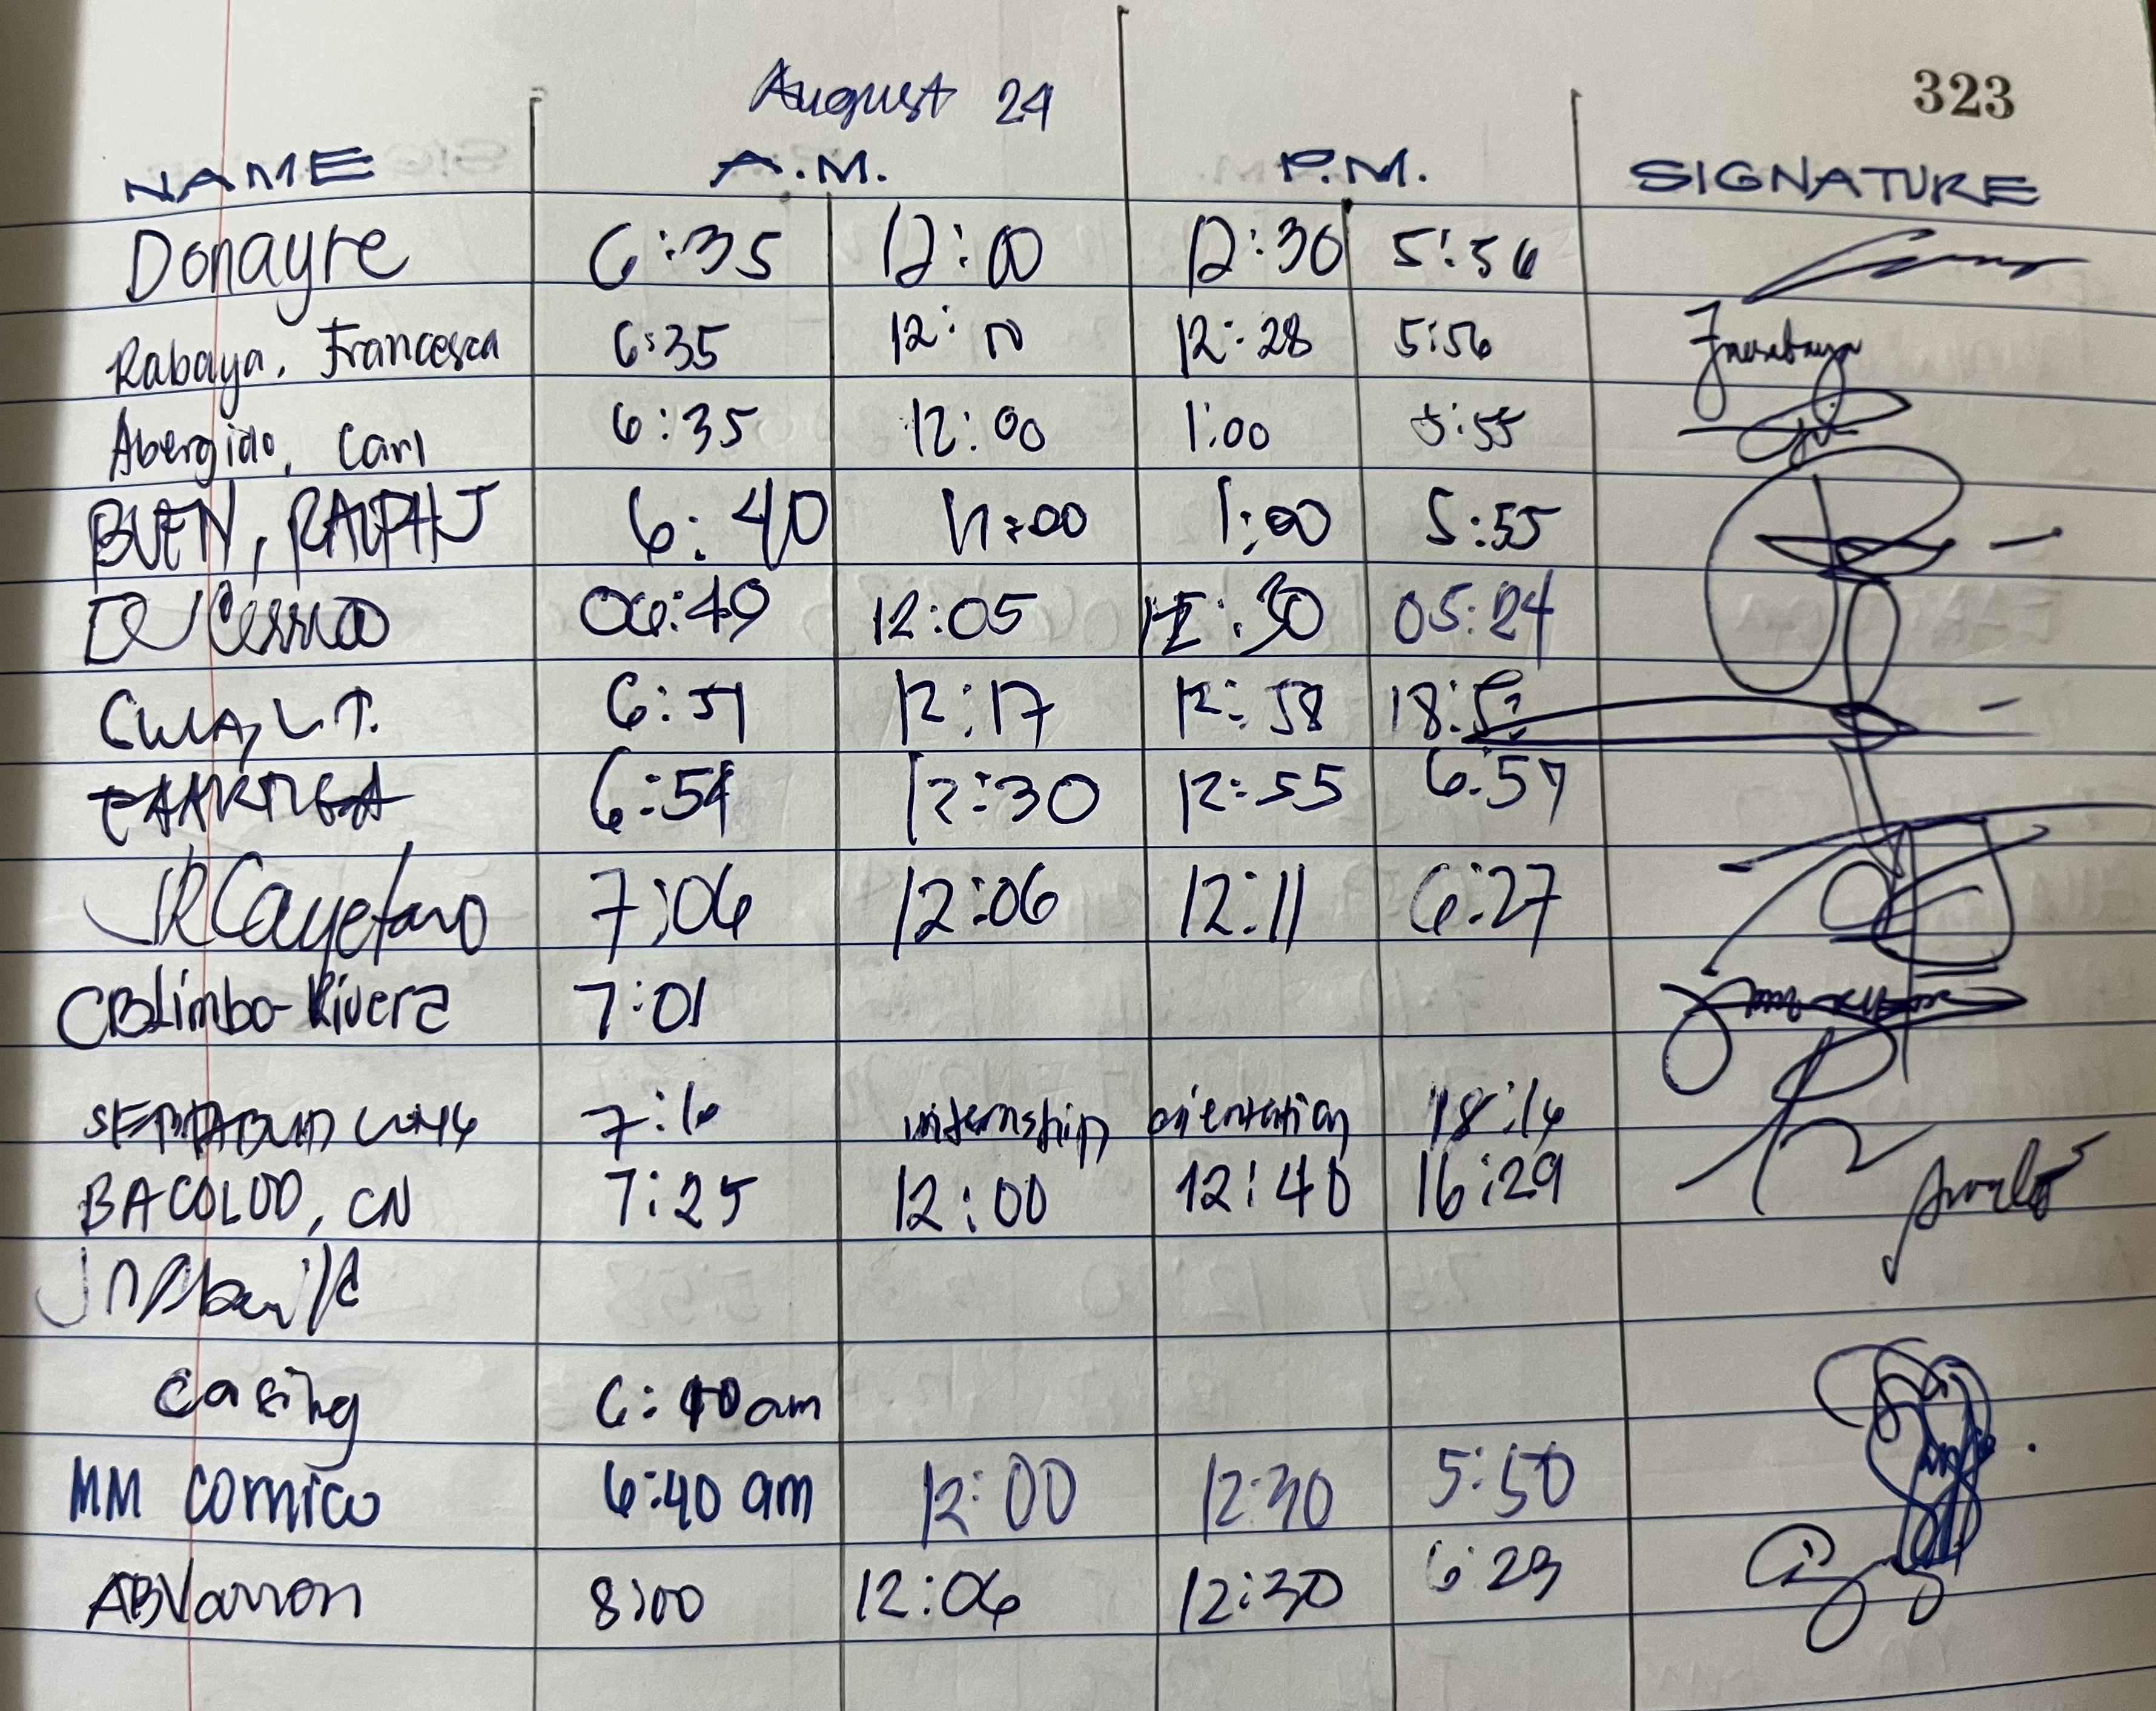 August 24
323
NAME A.M. P.M. SIGNATURE
Donayre 6:35 12:00 12:30 5:56
Rabaya, Francesca 6:35 12:10 12:28 5:56
Abergido, Carl 6:35 12:00 1:00 5:55
BUEN, RALPH J 6:40 1:00 5:55
06:49 12:05 12:30 05:24
6:51 12:17 12:58
6:54 12:30 12:55 6:57
JRCayetano 7:06 12:06 12:11 6:27
CBLimbo-Rivera 7:01
internship orientation
BACOLOD, CN 7:25 12:00 12:40 16:29
Casing am
MM Comico 6:40 am 12:00 12:30 5:50
ABVarron 8:00 12:06 12:30 6:23